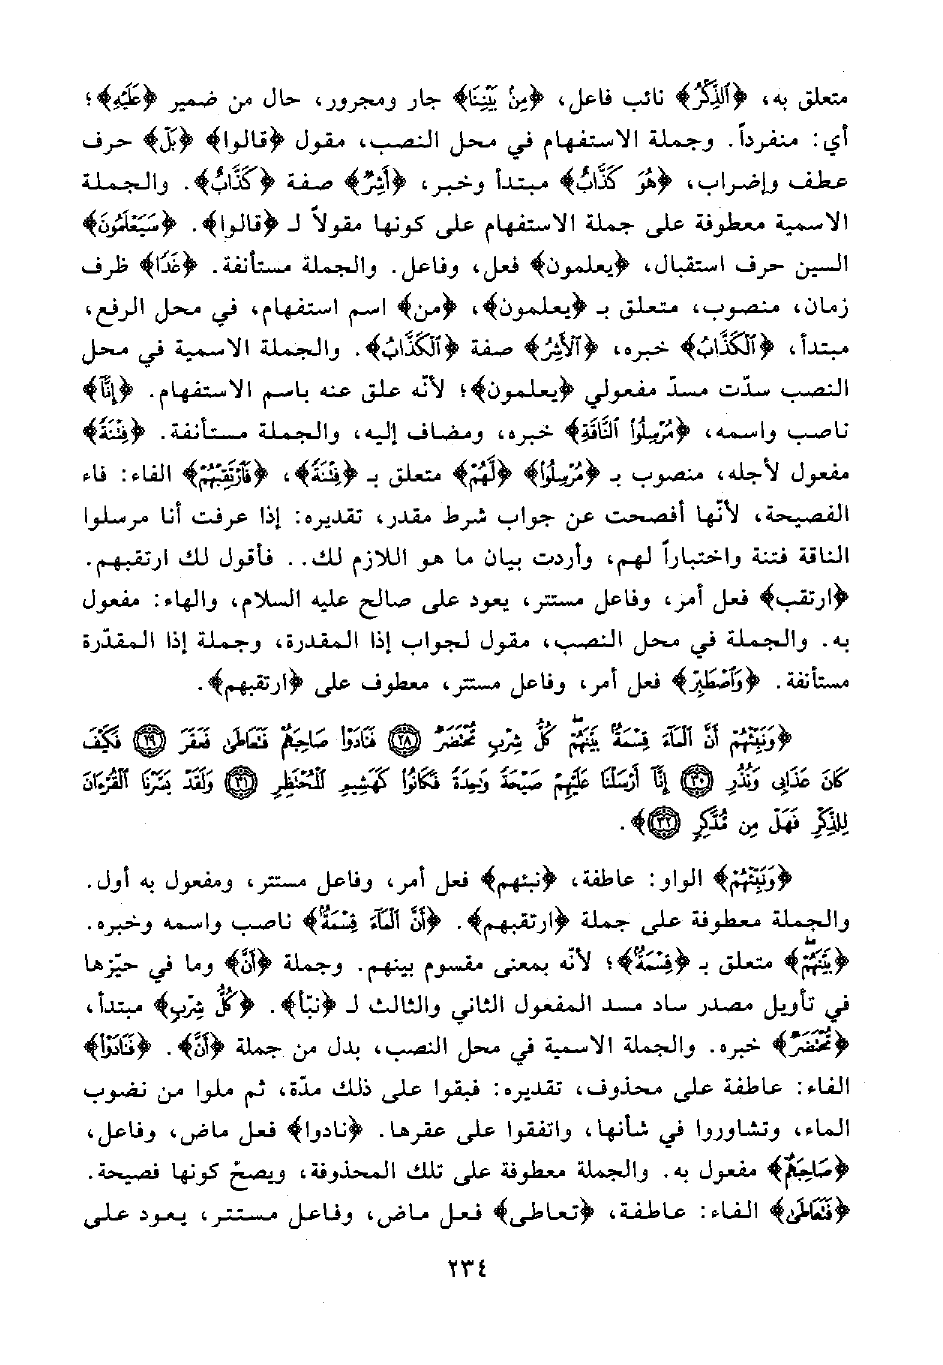 متعلق به، ﴿ٱلذِّكْرُ﴾ نائب فاعل، ﴿مِنۢ بَيْنِنَا﴾ جار ومجرور، حال من ضمير ﴿عَلَيْهِ﴾؛
أي: منفرداً. وجملة الاستفهام في محل النصب، مقول ﴿قالوا﴾ ﴿بَلْ﴾ حرف
عطف وإضراب، ﴿هُوَ كَذَّابٌ﴾ مبتدأ وخبر، ﴿أَشِرٌ﴾ صفة ﴿كَذَّابٌ﴾. والجملة
الاسمية معطوفة على جملة الاستفهام على كونها مقولاً لـ ﴿قالوا﴾. ﴿سَيَعْلَمُونَ﴾
السين حرف استقبال، ﴿يعلمون﴾ فعل، وفاعل. والجملة مستأنفة. ﴿غَدًا﴾ ظرف
زمان، منصوب، متعلق بـ ﴿يعلمون﴾، ﴿من﴾ اسم استفهام، في محل الرفع،
مبتدأ، ﴿ٱلْكَذَّابُ﴾ خبره، ﴿ٱلْأَشِرُ﴾ صفة ﴿ٱلْكَذَّابُ﴾. والجملة الاسمية في محل
النصب سدّت مسدّ مفعولي ﴿يعلمون﴾؛ لأنّه علق عنه باسم الاستفهام. ﴿إِنَّا﴾
ناصب واسمه، ﴿مُرْسِلُوا۟ ٱلنَّاقَةِ﴾ خبره، ومضاف إليه، والجملة مستأنفة. ﴿فِتْنَةً﴾
مفعول لأجله، منصوب بـ ﴿مُرْسِلُوا۟﴾ ﴿لَّهُمْ﴾ متعلق بـ ﴿فِتْنَةً﴾، ﴿فَٱرْتَقِبْهُمْ﴾ الفاء: فاء
الفصيحة، لأنّها أفصحت عن جواب شرط مقدر، تقديره: إذا عرفت أنا مرسلوا
الناقة فتنة واختباراً لهم، وأردت بيان ما هو اللازم لك.. فأقول لك ارتقبهم.
﴿ارتقب﴾ فعل أمر، وفاعل مستتر، يعود على صالح عليه السلام، والهاء: مفعول
به. والجملة في محل النصب، مقول لجواب إذا المقدرة، وجملة إذا المقدّرة
مستأنفة. ﴿وَٱصْطَبِرْ﴾ فعل أمر، وفاعل مستتر، معطوف على ﴿ارتقبهم﴾.
﴿وَنَبِّئْهُمْ أَنَّ ٱلْمَآءَ قِسْمَةٌۢ بَيْنَهُمْ ۖ كُلُّ شِرْبٍ مُّحْتَضَرٌ ﴿٢٨﴾ فَنَادَوْا۟ صَاحِبَهُمْ فَتَعَاطَىٰ فَعَقَرَ ﴿٢٩﴾ فَكَيْفَ
كَانَ عَذَابِى وَنُذُرِ ﴿٣٠﴾ إِنَّآ أَرْسَلْنَا عَلَيْهِمْ صَيْحَةً وَٰحِدَةً فَكَانُوا۟ كَهَشِيمِ ٱلْمُحْتَظِرِ ﴿٣١﴾ وَلَقَدْ يَسَّرْنَا ٱلْقُرْءَانَ
لِلذِّكْرِ فَهَلْ مِن مُّدَّكِرٍ ﴿٣٢﴾﴾.
﴿وَنَبِّئْهُمْ﴾ الواو: عاطفة، ﴿نبئهم﴾ فعل أمر، وفاعل مستتر، ومفعول به أول.
والجملة معطوفة على جملة ﴿ارتقبهم﴾. ﴿أَنَّ ٱلْمَآءَ قِسْمَةٌ﴾ ناصب واسمه وخبره.
﴿بَيْنَهُمْ ۖ﴾ متعلق بـ ﴿قِسْمَةٌ﴾؛ لأنّه بمعنى مقسوم بينهم. وجملة ﴿أَنَّ﴾ وما في حيّزها
في تأويل مصدر ساد مسد المفعول الثاني والثالث لـ ﴿نبّأ﴾. ﴿كُلُّ شِرْبٍ﴾ مبتدأ،
﴿مُّحْتَضَرٌ﴾ خبره. والجملة الاسمية في محل النصب، بدل من جملة ﴿أَنَّ﴾. ﴿فَنَادَوْا۟﴾
الفاء: عاطفة على محذوف، تقديره: فبقوا على ذلك مدّة، ثم ملوا من نضوب
الماء، وتشاوروا في شأنها، واتفقوا على عقرها. ﴿نادوا﴾ فعل ماض، وفاعل،
﴿صَاحِبَهُمْ﴾ مفعول به. والجملة معطوفة على تلك المحذوفة، ويصحّ كونها فصيحة.
﴿فَتَعَاطَىٰ﴾ الفاء: عاطفة، ﴿تعاطى﴾ فعل ماض، وفاعل مستتر، يعود على
٢٣٤